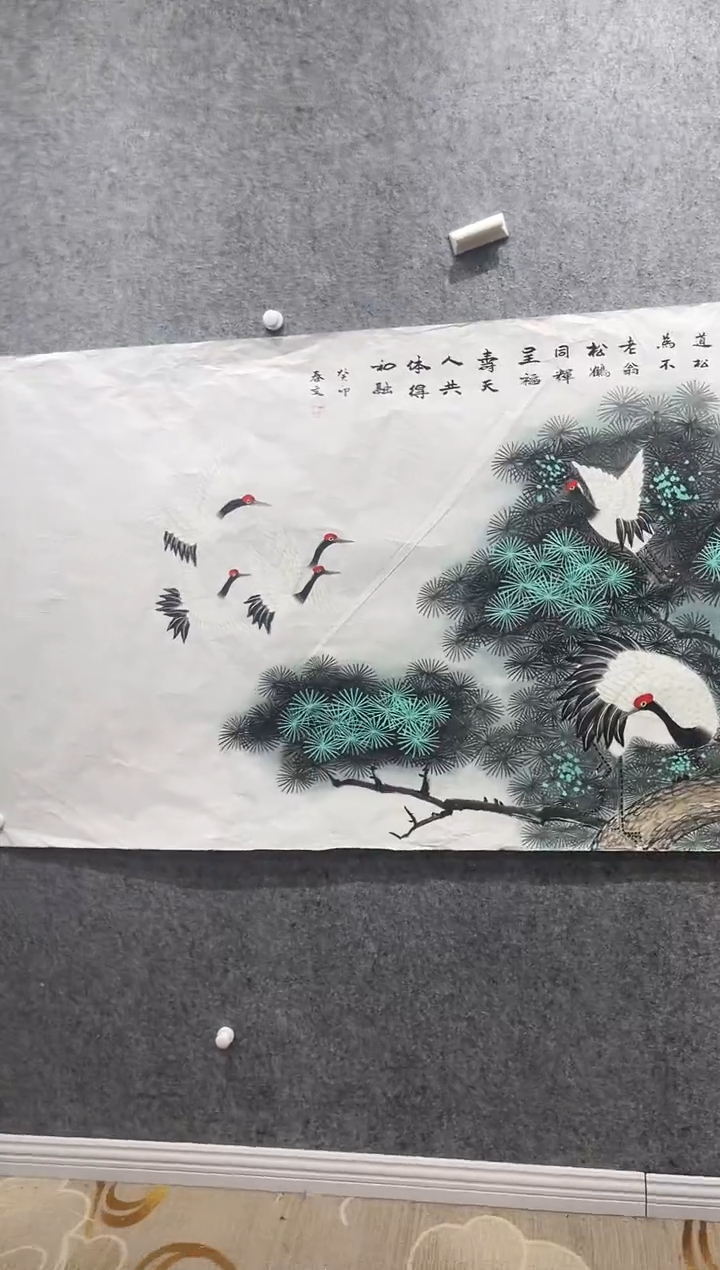 道松
為不
老翁
松鶴
同輝
呈福
壽天
人共
体得
和融
癸卯
春文